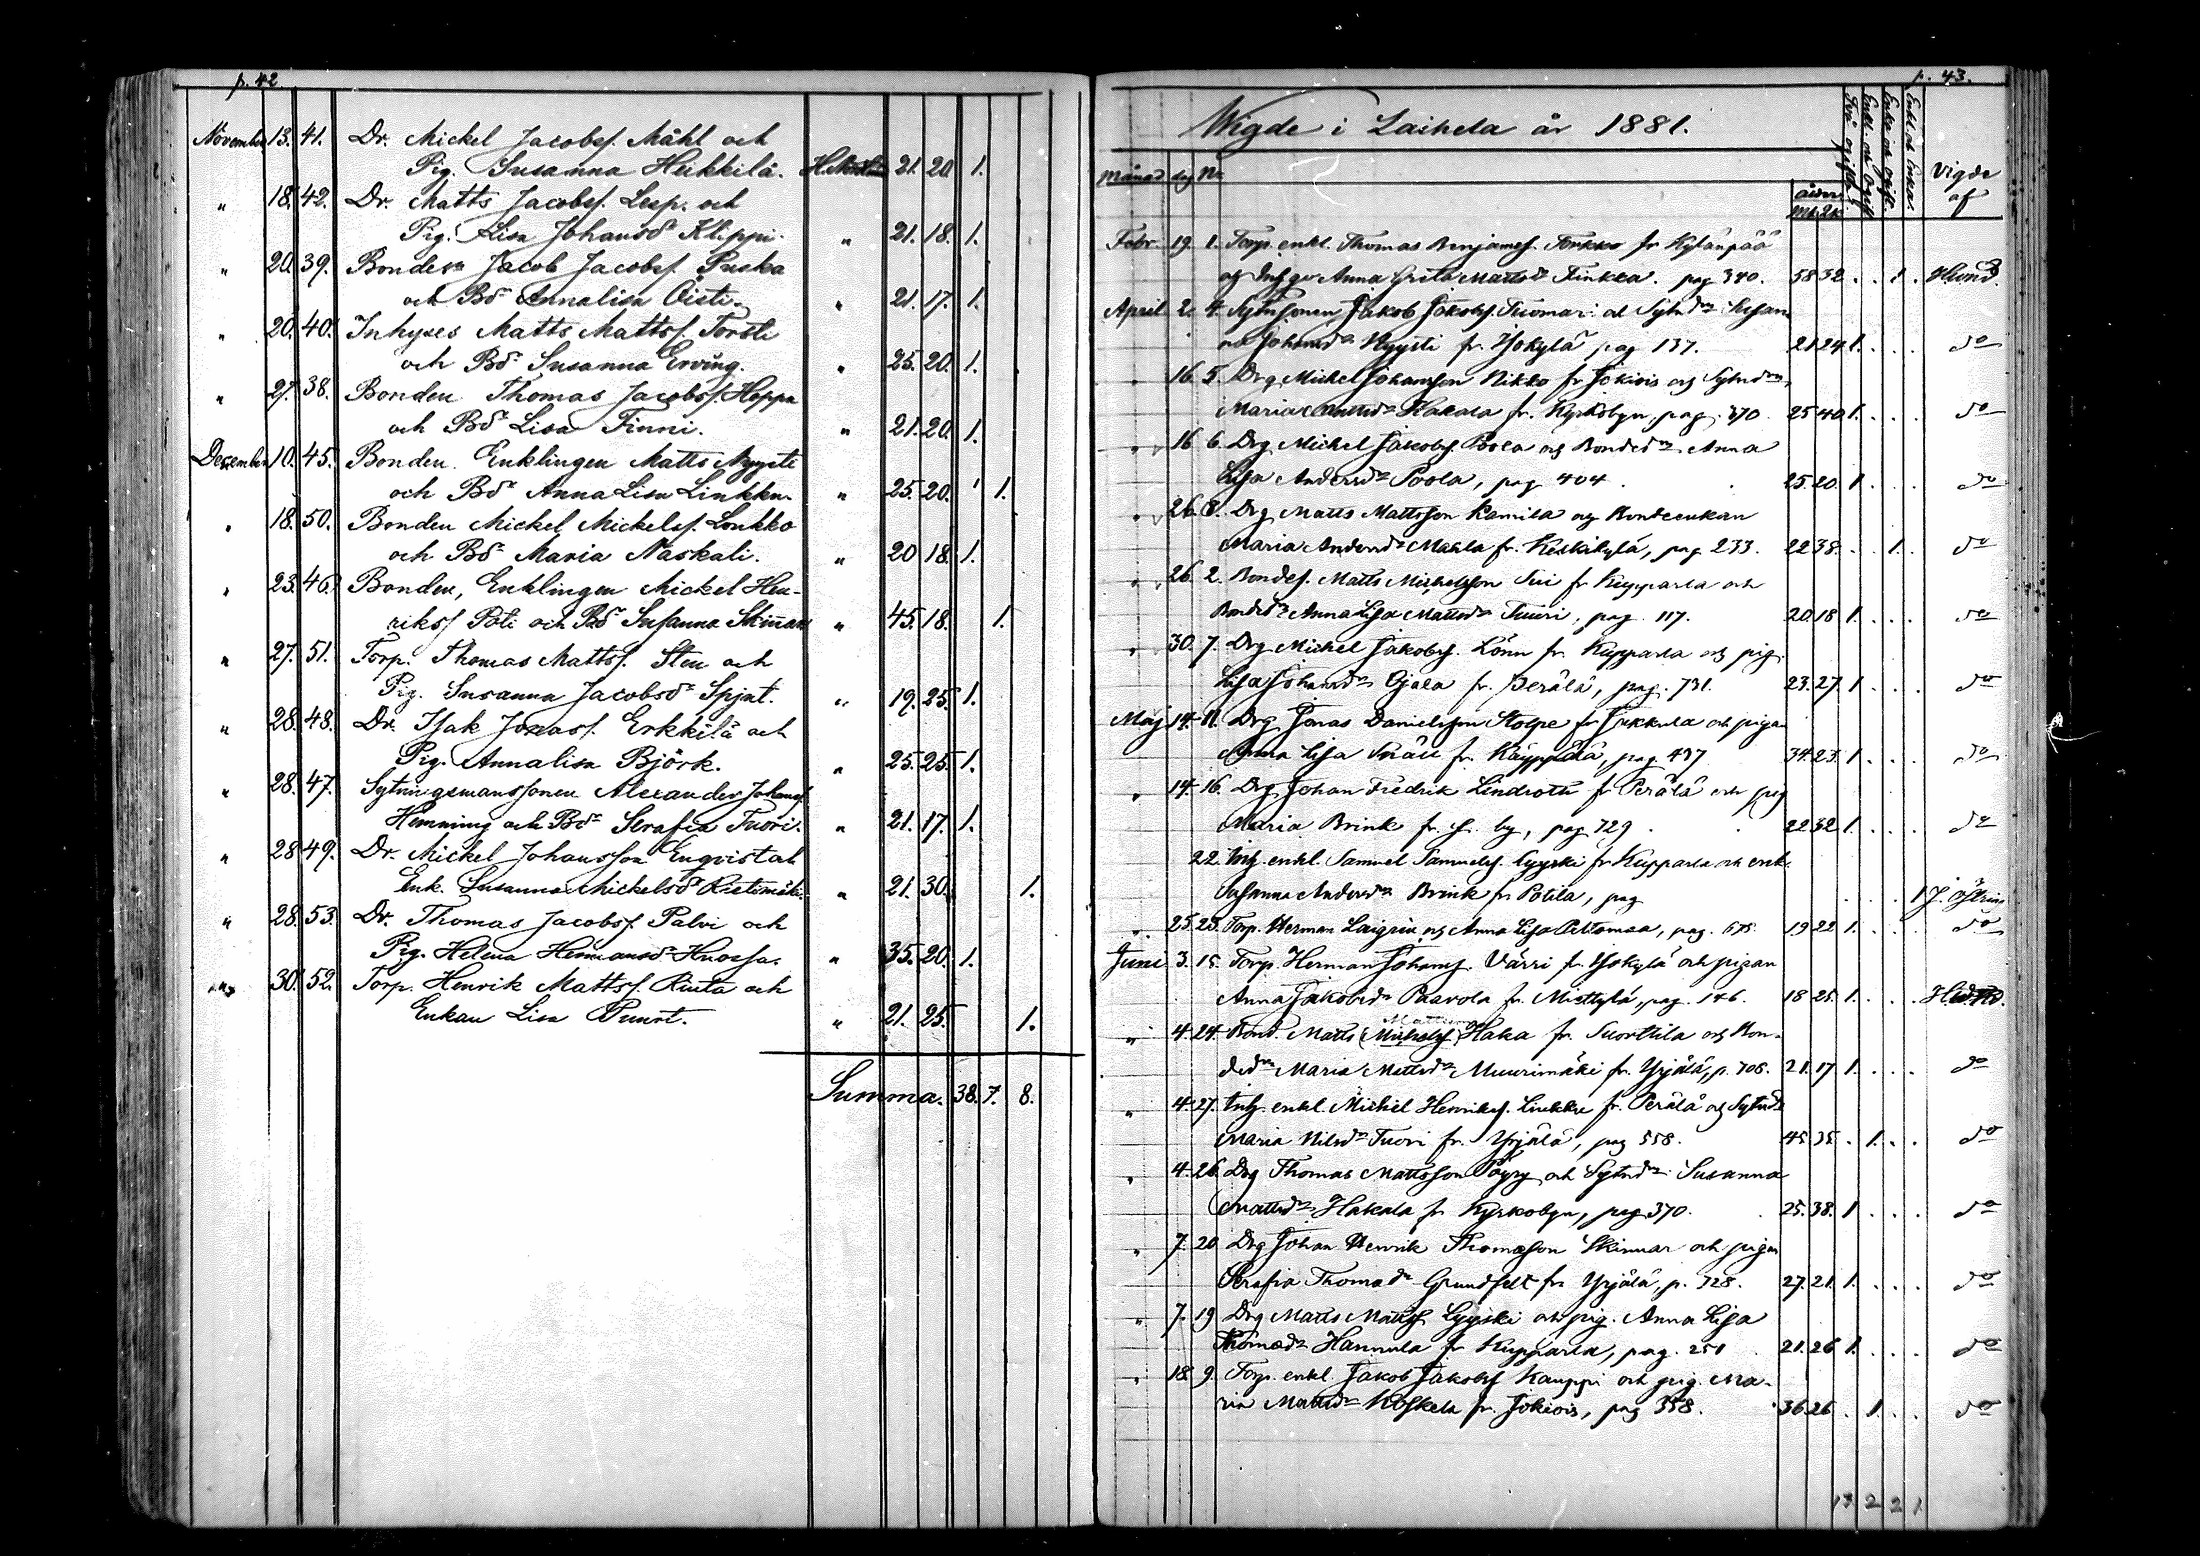 p. 42
November 13. 41. Dr. Mickel Jacobss. Mähl och
Pig. Susanna Heikkilä. 21. 20. 1.
" 18. 42. Dr. Matts Jacobss. Lesp. och
Pig. Lisa Johansdr Klippi. " 21. 18. 1.
" 20. 39. Bonden Jacob Jacobss. Puska
och Bdr Annalisa Oisti. " 21. 17. 1.
" 20. 40. Inhyses Matts Mattss. Torsti
och Bdr Susanna Erving. " 25. 20. 1.
" 27. 38. Bonden Thomas Jacobss. Hoppa
och Bdr Lisa Finni. " 21. 20. 1.
December 10. 45. Bonden. Enklingen Matts Nyysti
och Bdr Anna Lisa Linkku. " 25. 20. 1.
" 18. 50. Bonden Mickel Mickelss. Lonkko
och Bdr Maria Naskali. " 20 18. 1.
" 23. 46. Bonden, Enklingen Mickel Hen-
rikss Poti och Bdr Susanna Skinnar " 45. 18. 1.
" 27. 51. Torp. Thomas Mattss. Sten och
Pig. Susanna Jacobsdr Spjut. " 19. 25. 1.
" 28. 48. Dr. Isak Jonass. Erkkilä och
Pig. Annalisa Björk. " 25. 25. 1.
" 28. 47. Sytningsmanssonen Alexander Johanss.
Hemming och Bdr Serafia Tuori. " 21. 17. 1.
" 28 49. Dr. Mickel Johansson Enqvist och
Enk. Susanna Mickelsdr Ristimäki. " 21. 30. 1.
" 28. 53. Dr. Thomas Jacobss. Palvi och
Pig. Helena Hermansdr Huossa. " 35. 20. 1.
" 30. 52. Torp. Henrik Mattss. Rinta och
Enkan Lisa Puust. " 21. 25. 1.
Summa. 38. 7. 8.
p. 43.
Wigde i Laihela år 1881.
Månad dag No ålder M. Q. Vigde af
Febr. 19. 1. Torp. enkl. Thomas Benjamss. Torkko fr Kylänpää
og Inh. Anna Greta Mattsdr Finkka. pag 340. 58 32. . . 1.
April 2. 4. Sytnssonen Jakob Jakobss. Tuomari och Sytndr Susan
na Johansdr Nyysti fr. Isokylä pag 137. 21 24 1. . . . do
" 16. 5. Drg Mickel Johansson Nikko fr Jokiois og Sytndr
Maria Mattsdr Hakala fr. Kyrkobyn, pag. 370 25 40 1. . . . do
" 16 6. Drg Mickel Jakobss. Poola og Bondedr Anna
Lisa Andersdr Poola, pag 404. 25. 20. 1. . . . do
" 26. 8. Drg Matts Mattsson Kamila og Bondeenkan
Maria Andersdr Makla fr. Keskikylä, pag. 233. 22 38. . . 1. do
" 26. 2. Bondes. Matts Mickelsson Sui fr Kupparla och
Bondedr Anna Lisa Mattsdr Tuuri, pag. 117. 20 18 1. . . . do
" 30. 7. Drg Mickel Jakobss. Lönn fr. Kupparla och pig.
Lisa Johansdr Ojala fr. Perälä, pag. 731. 23. 27. 1 . . . do
Maj 14. 11. Drg Jonas Danielsson Stolpe fr Jakkula och pigan
Anna Lisa Snäll fr. Käyppälä, pag 437 34. 23. 1 . . . do
" 14. 16. Drg Johan Fredrik Lindroth fr Perälä och pig
Maria Brink fr. s. by, pag 729. 22 32 1. . . . do
22. Inh. enkl. Samuel Samuelss. Lyyski fr Kupparla och enk.
Susanna Andersdr Brink fr Potila, pag . . . 1
" 25. 23. Torp. Herman Laigrin og Anna Lisa Peltomaa, pag. 675. 19 22 1. . . . do
Juni 3. 15. Torp. Herman Johanss. Värri fr. Isokylä och pigan
Anna Jakobsdr Paavola fr. Miettylä, pag. 146. 18 25. 1. . . .
" 4. 24. Bond. Matts (Mickelss) Haka fr. Suorttila och Bon-
dedr Maria Mattsdr Muurimäki fr. Yrjälä, p. 708. 21. 17 1. . . . do
" 4. 27. Inh. enkl. Michel Henrikss. Linkku fr. Perälä og Sytndr
Maria Nilsdr Tuori fr. Yrjälä, pag 558. 45. 35. . 1. . . do
" 4. 26. Drg Thomas Mattsson Päyry och Sytndr Susanna
Mattsdr Hakala fr Kyrkobyn, pag 370. 25. 38. 1 . . . do
" 7. 20 Drg Johan Henrik Thomasson Skinnar och pigan
Serafia Thomasdr Grundfelt fr. Yrjälä, p. 728. 27. 21. 1. . . . do
" 7. 19 Drg Matts Mattss Lyyski och pig. Anna Lisa
Thomasdr Hannula fr Kupparla, pag. 251 21. 26 1. . . . do
" 18. 9. Torp. enkl. Jakob Jakobss Kauppi och pig. Ma-
ria Mattsdr Koskela fr. Jokiois, pag 358. 36 26 . 1. . . do
13 2 2 1